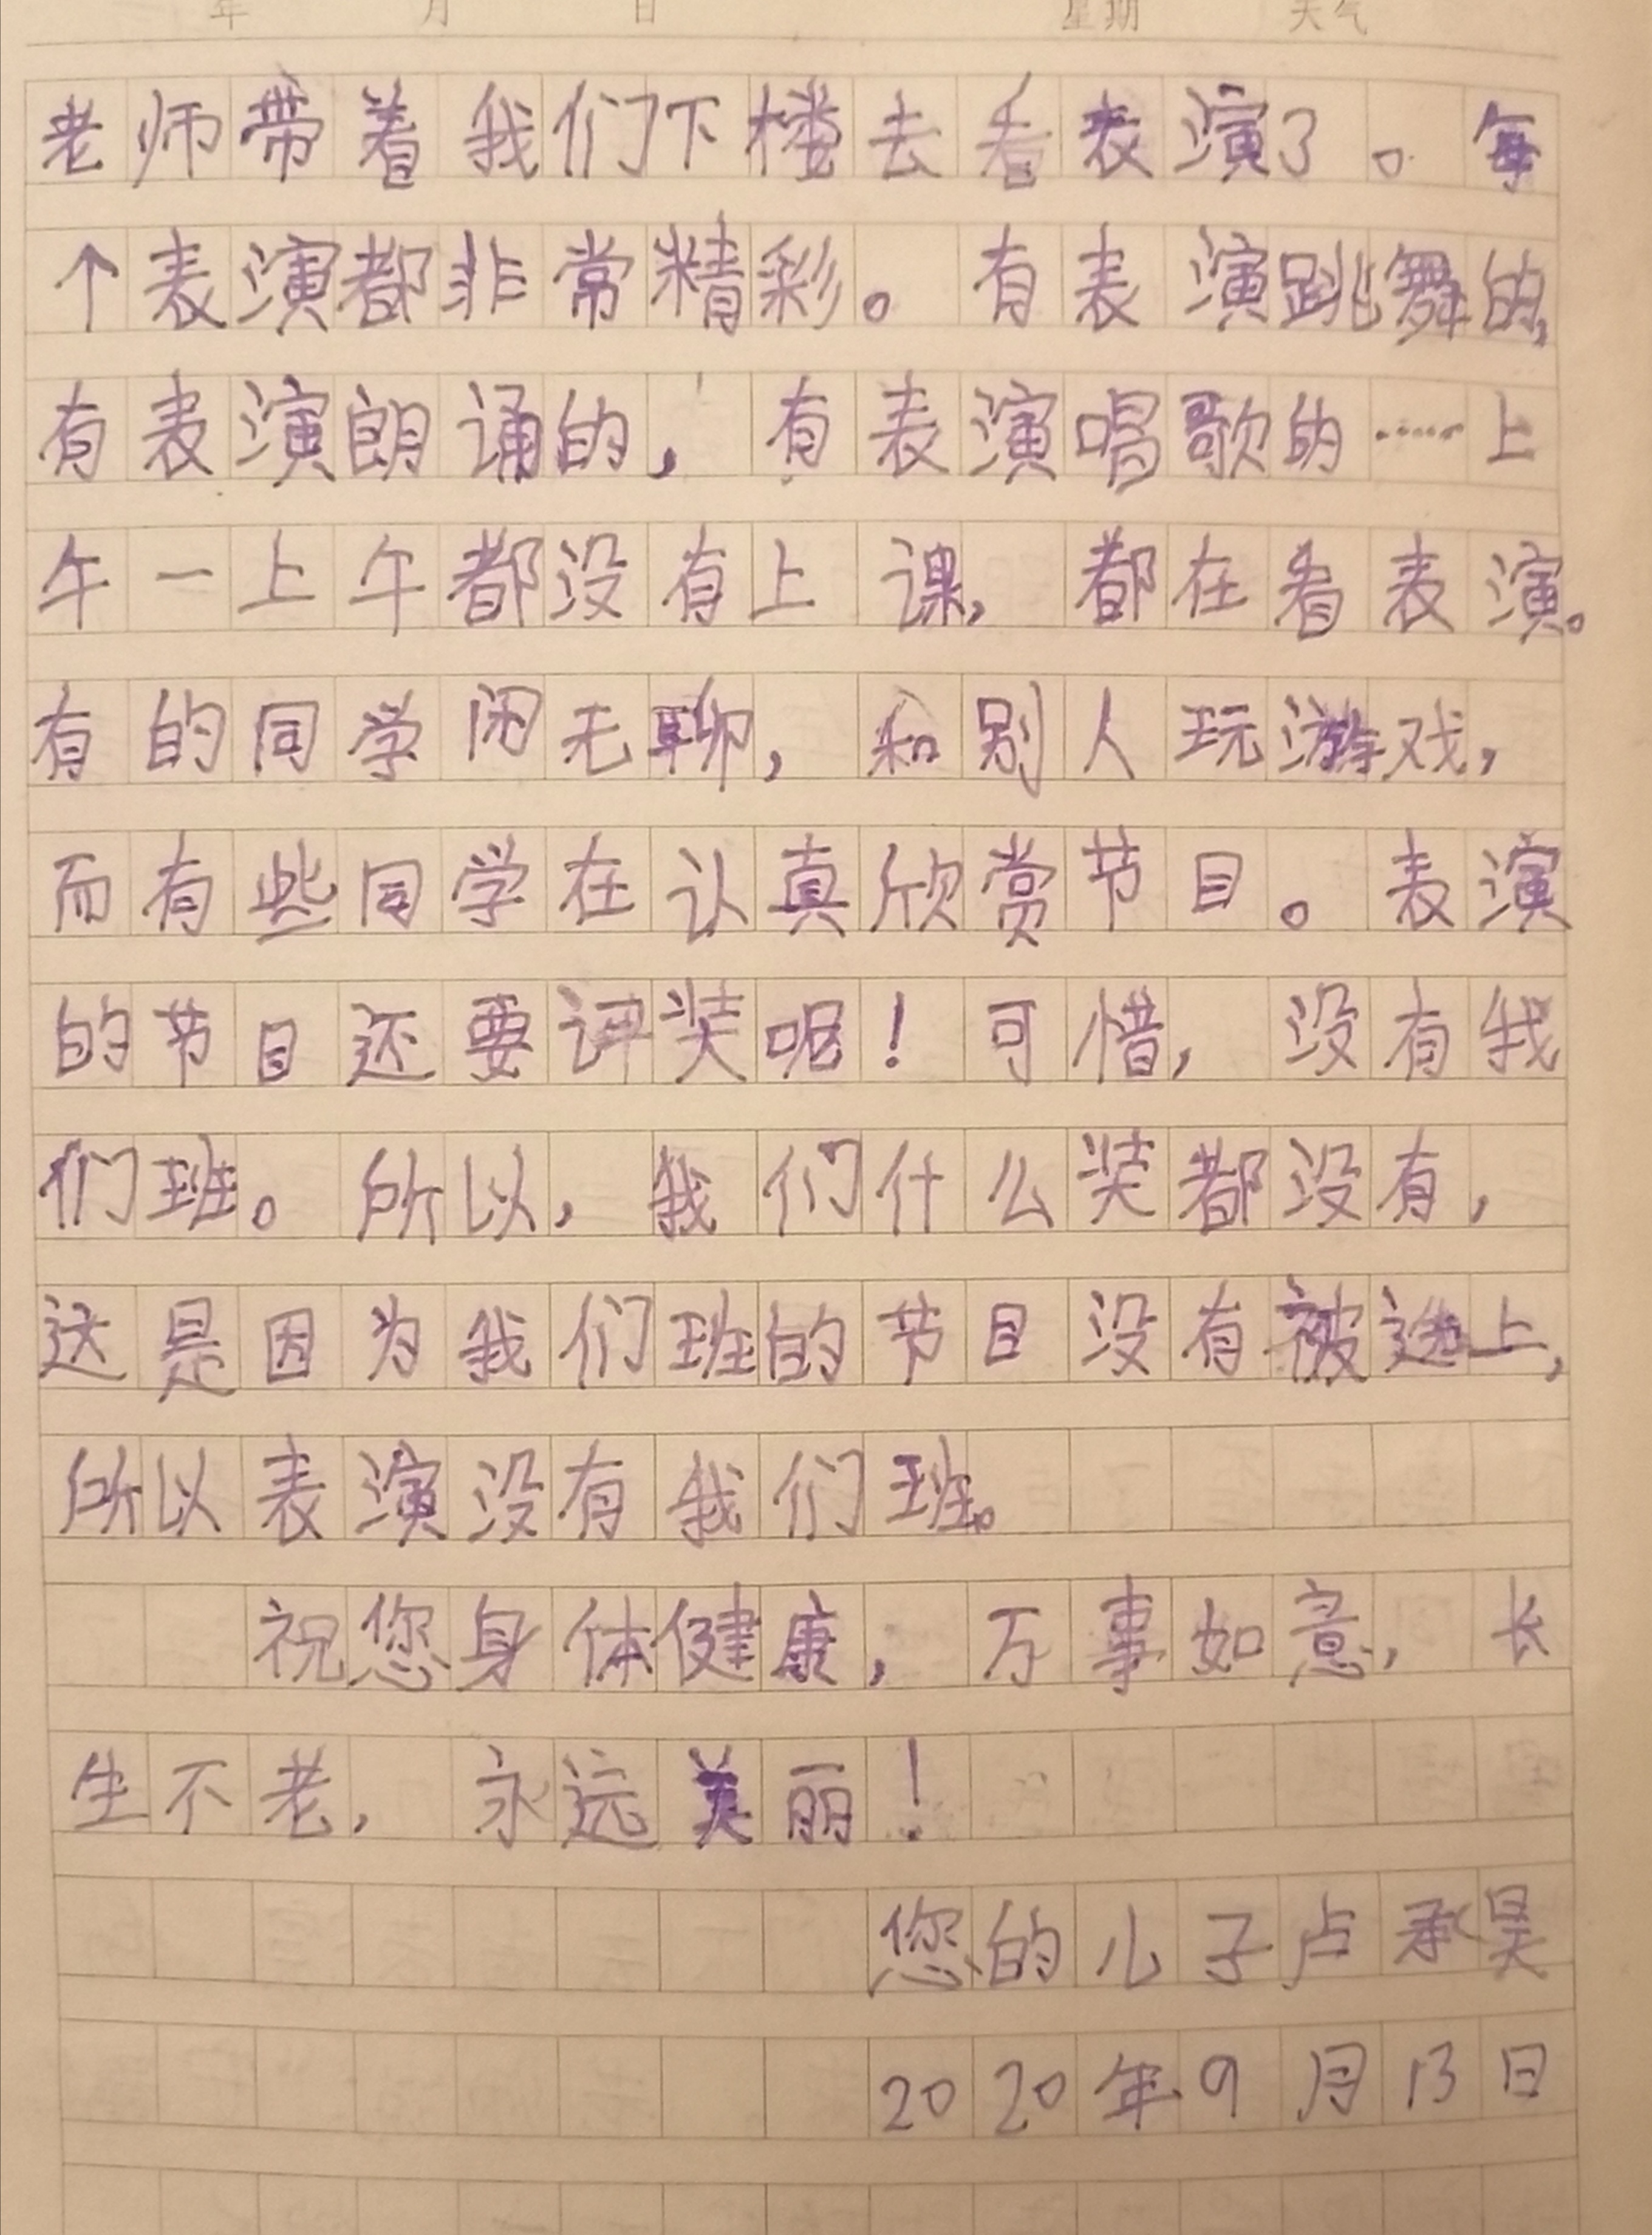 年 月 日 星期 天气
老师带着我们下楼去看表演了。每
个表演都非常精彩。有表演跳舞的,
有表演朗诵的，有表演唱歌的……上
午一上午都没有上课，都在看表演。
有的同学闲无聊，和别人玩游戏，
而有些同学在认真欣赏节目。表演
的节目还要评奖呢！可惜，没有我
们班。所以，我们什么奖都没有，
这是因为我们班的节目没有被选上，
所以表演没有我们班。
祝您身体健康，万事如意，长
生不老，永远美丽！
您的儿子卢承昊
2020年9月13日